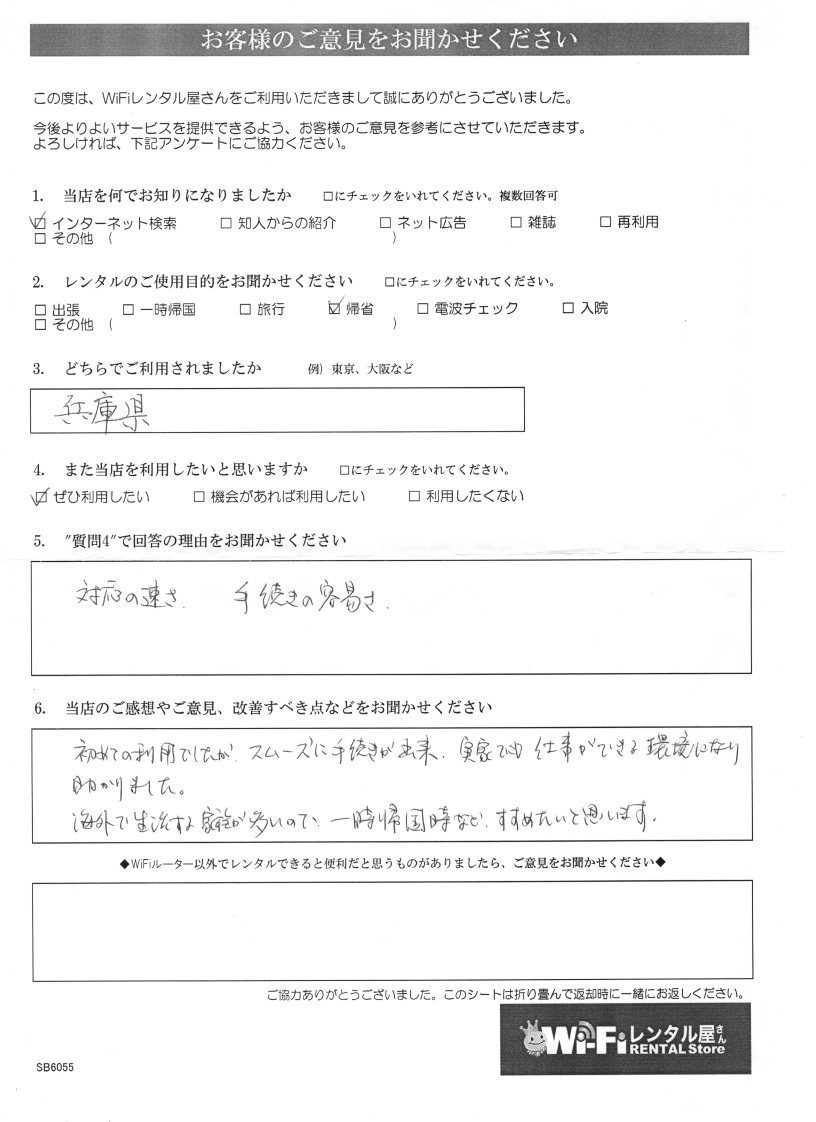 お客様のご意見をお聞かせください
この度は、WiFiレンタル屋さんをご利用いただきまして誠にありがとうございました。
今後よりよいサービスを提供できるよう、お客様のご意見を参考にさせていただきます。
よろしければ、下記アンケートにご協力ください。
1. 当店を何でお知りになりましたか □にチェックをいれてください。複数回答可
☑ インターネット検索 □ 知人からの紹介 □ ネット広告 □ 雑誌 □ 再利用
□ その他 ( )
2. レンタルのご使用目的をお聞かせください □にチェックをいれてください。
□ 出張 □ 一時帰国 □ 旅行 ☑ 帰省 □ 電波チェック □ 入院
□ その他 ( )
3. どちらでご利用されましたか 例) 東京、大阪など
兵庫県
4. また当店を利用したいと思いますか □にチェックをいれてください。
☑ ぜひ利用したい □ 機会があれば利用したい □ 利用したくない
5. "質問4"で回答の理由をお聞かせください
対応の速さ. 手続きの容易さ.
6. 当店のご感想やご意見、改善すべき点などをお聞かせください
初めての利用でしたが、スムーズに手続きが出来、実家でも仕事ができる環境になり
助かりました。
海外で生活する家族が多いので、一時帰国時など、すすめたいと思います。
◆WiFiルーター以外でレンタルできると便利だと思うものがありましたら、ご意見をお聞かせください◆
ご協力ありがとうございました。このシートは折り畳んで返却時に一緒にお返しください。
Wi-Fiレンタル屋さん
RENTAL Store
SB6055